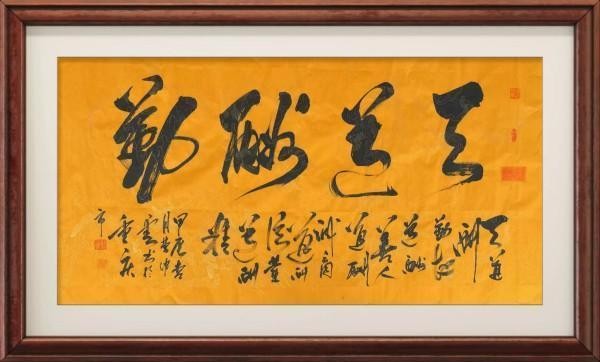 天道酬勤
天道
酬
勤地
道酬
善人
道酬
诚商
道酬
信業
道酬
精
重庆
市